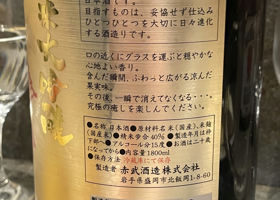 米大吟醸
日本酒です。
目指すものは、妥協せず仕込み
ひとつひとつを大切に日々進化
する酒造りです。
口の近くにグラスを運ぶと穏やかな
心地よい香り。
含んだ瞬間、ふわっと広がる涼しだ
果実味。
その後、一瞬で消えてなくなる・・・。
究極の癒しを楽しんでください。
●名称 日本酒●原材料名 米(国産)、米麹
(国産米)●精米歩合40% ●製造年月は枠
下部へ●アルコール分15度●お酒は二十歳
になってから●内容量1800ml
●保存方法 冷蔵庫にて保存
製造者 赤武酒造株式会社
岩手県盛岡市北飯岡1-8-60